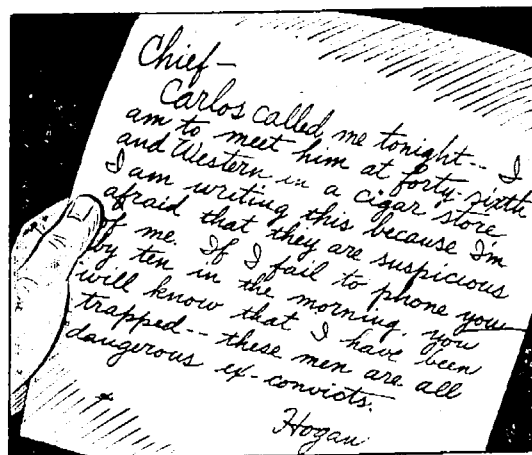 Chief—
Carlos called me tonight-- I
am to meet him at forty-sixth
and Western in a cigar store
I am writing this because I'm
afraid that they are suspicious
of me. If I fail to phone you
by ten in the morning, you
will know that I have been
trapped-- these men are all
dangerous ex-convicts.
Hogan